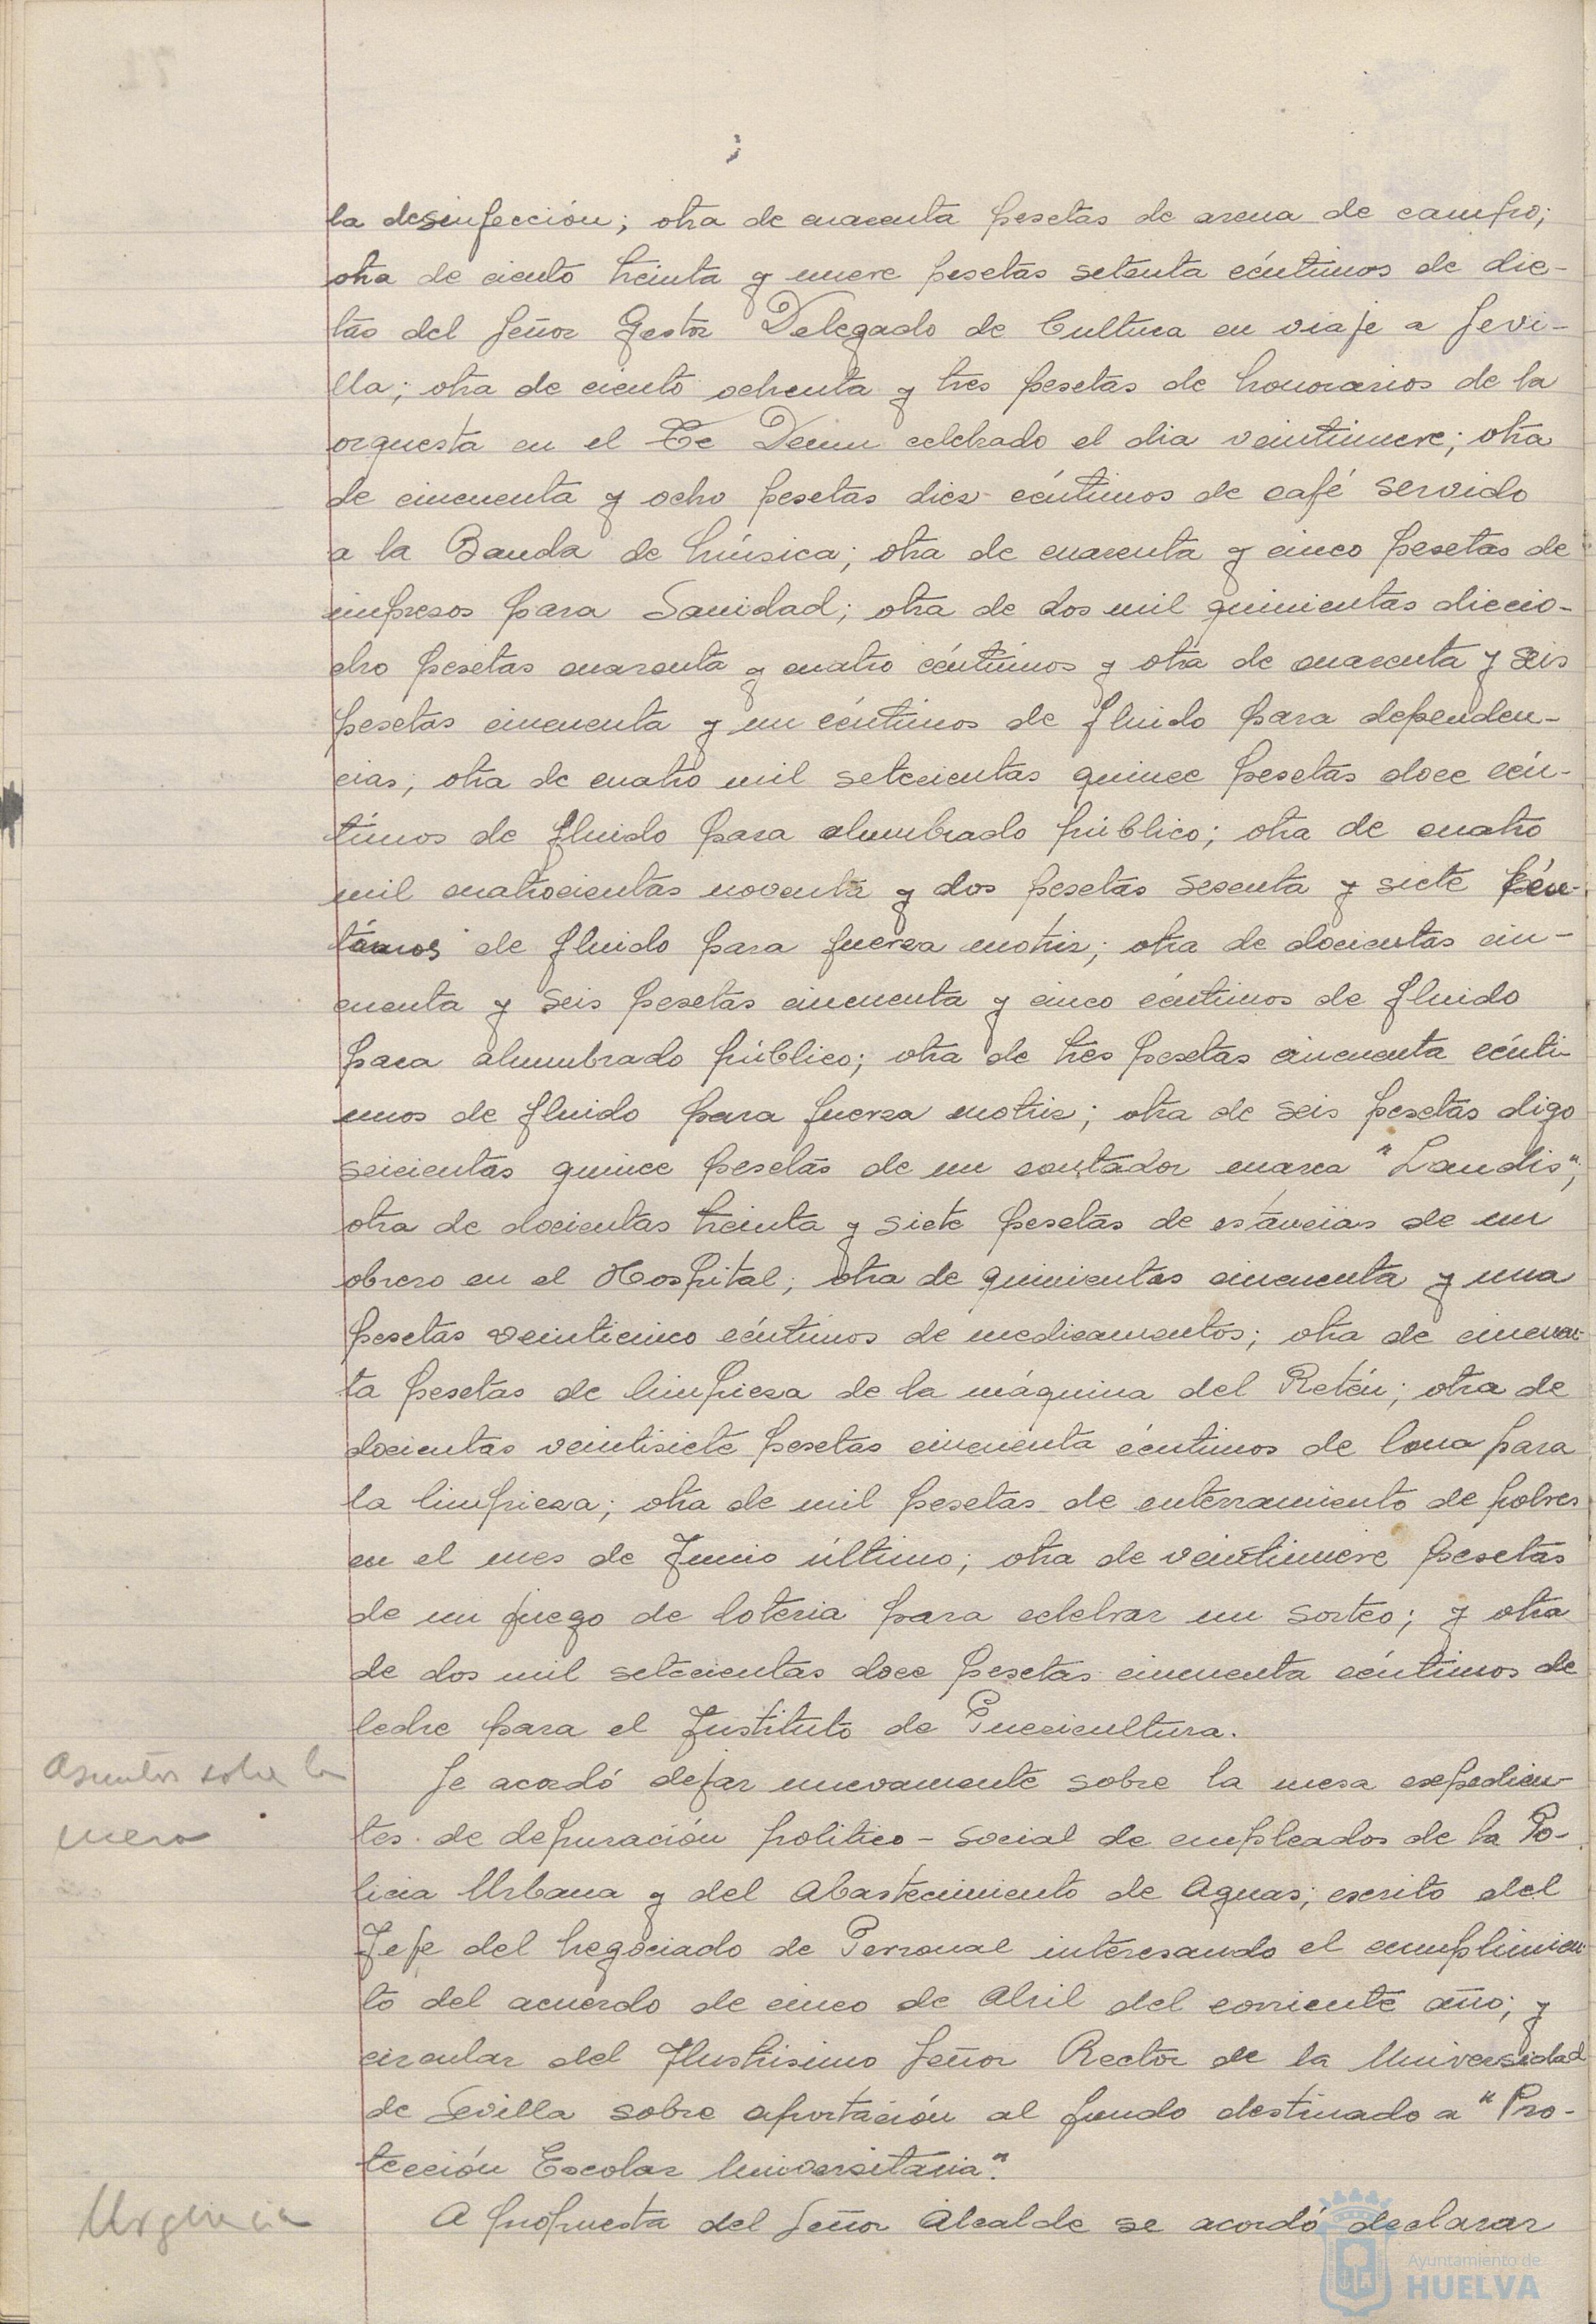 la desinfección; otra de cuarenta pesetas de arena de campo;
otra de ciento treinta y nueve pesetas setenta céntimos de die-
tas del Señor Gestor Delegado de Cultura en viaje a Sevi-
lla; otra de ciento ochenta y tres pesetas de honorarios de la
orquesta en el Te Deum celebrado el dia veintinueve; otra
de cincuenta y ocho pesetas diez céntimos de café servido
a la Banda de Música; otra de cuarenta y cinco pesetas de
impresos para Sanidad; otra de dos mil quinientas diecio-
cho pesetas cuarenta y cuatro céntimos y otra de cuarenta y seis
pesetas cincuenta y un céntimos de fluido para dependen-
cias; otra de cuatro mil setecientas quince pesetas doce cén-
timos de fluido para alumbrado público; otra de cuatro
mil cuatrocientas noventa y dos pesetas sesenta y siete cén-
timos de fluido para fuerza motriz; otra de docientas cin-
cuenta y seis pesetas cincuenta y cinco céntimos de fluido
para alumbrado público; otra de tres pesetas cincuenta cénti-
mos de fluido para fuerza motriz; otra de seis pesetas digo
seicientas quince pesetas de un contador marca "Landis";
otra de docientas treinta y siete pesetas de estáncias de un
obrero en el Hospital; otra de quinientas cincuenta y una
pesetas veinticinco céntimos de medicamentos; otra de cincuen-
ta pesetas de limpieza de la máquina del Retén; otra de
docientas veintisiete pesetas cincuenta céntimos de lona para
la limpieza; otra de mil pesetas de enterramiento de pobres
en el mes de Junio último; otra de veintinueve pesetas
de un juego de loteria para celebrar un sorteo; y otra
de dos mil setecientas doce pesetas cincuenta céntimos de
leche para el Instituto de Puericultura.
Asuntos sobre la
mesa
Se acordó dejar nuevamente sobre la mesa expedien-
tes de depuración politico-social de empleados de la Po-
licia Urbana y del Abastecimiento de Aguas; escrito del
Jefe del Negociado de Personal interesando el cumplimien-
to del acuerdo de cinco de Abril del corriente año; y
circular del Ilustrisimo Señor Rector de la Universidad
de Sevilla sobre aportación al fondo destinado a "Pro-
tección Escolar Universitaria".
Urgencia
A propuesta del Señor Alcalde se acordó declarar
Ayuntamiento de
HUELVA